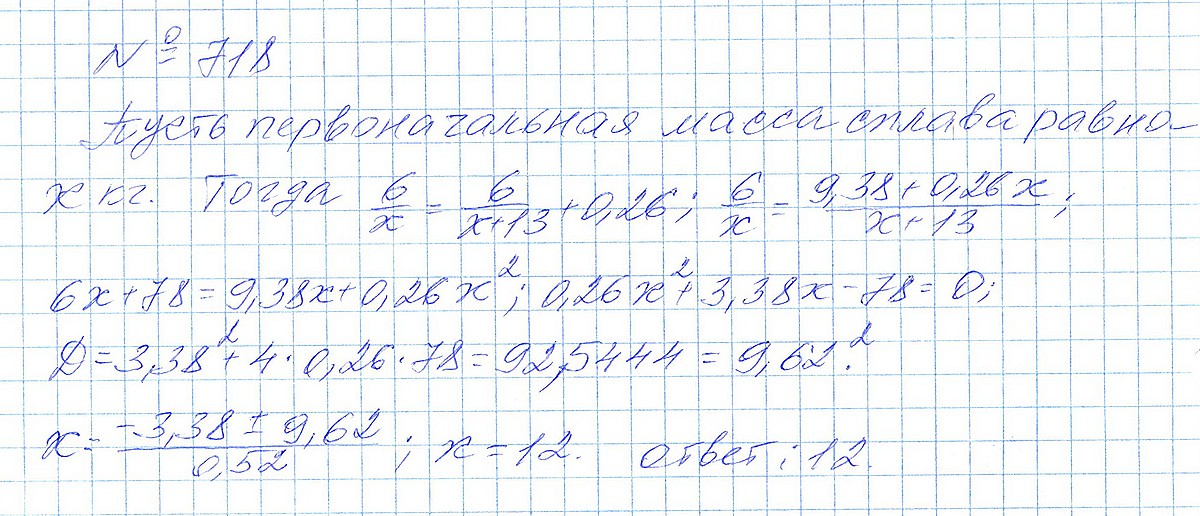 № 718
Пусть первоначальная масса сплава равна
x кг. Тогда 6/x = 6/(x+13) + 0,26; 6/x = (9,38+0,26x)/(x+13);
6x+78=9,38x+0,26x²; 0,26x²+3,38x-78=0;
D=3,38²+4·0,26·78=92,5444=9,62².
x=(-3,38±9,62)/0,52; x=12. ответ: 12.